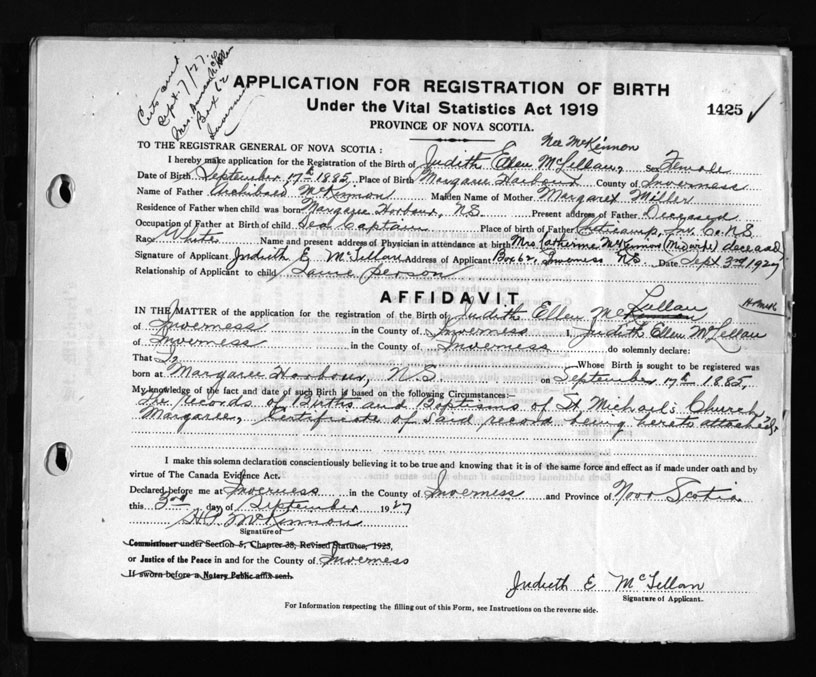 Certs and
Sept 7/27.
Mrs.
Box 62
APPLICATION FOR REGISTRATION OF BIRTH
Under the Vital Statistics Act 1919
1425 ✓
PROVINCE OF NOVA SCOTIA.
Nee McKinnon
TO THE REGISTRAR GENERAL OF NOVA SCOTIA :
I hereby make application for the Registration of the Birth of Judith Ellen McLellan, Sex Female
Date of Birth September 17th 1885. Place of Birth Margaree Harbour County of Inverness
Name of Father Archibald McKinnon Maiden Name of Mother Margaret Miller
Residence of Father when child was born Margaree Harbour, N.S. Present address of Father Deceased
Occupation of Father at Birth of child Sea Captain Place of birth of Father Cheticamp, Inv. Co. N.S.
Race White Name and present address of Physician in attendance at birth Mrs. Catherine McKinnon (Midwife) deceased
Signature of Applicant Judith E McLellan Address of Applicant Box 62, Inverness N.S. Date Sept 3rd 1927
Relationship of Applicant to child Same person
AFFIDAVIT
IN THE MATTER of the application for the registration of the Birth of Judith Ellen McLellan
of Inverness in the County of Inverness I, Judith Ellen McLellan
of Inverness in the County of Inverness do solemnly declare:
That I, Whose Birth is sought to be registered was
born at Margaree Harbour, N.S. on September 17th 1885.
My knowledge of the fact and date of such Birth is based on the following Circumstances:—
The records of Births and Baptisms of St. Michael's Church,
Margaree, Certificate of said record being hereto attached.
I make this solemn declaration conscientiously believing it to be true and knowing that it is of the same force and effect as if made under oath and by
virtue of The Canada Evidence Act.
Declared before me at Inverness in the County of Inverness and Province of Nova Scotia
this 3rd day of September 1927
McKinnon
Signature of
Commissioner under Section 5, Chapter 38, Revised Statutes, 1923,
or Justice of the Peace in and for the County of Inverness
If sworn before a Notary Public affix seal.
Judith E McLellan
Signature of Applicant.
For Information respecting the filling out of this Form, see Instructions on the reverse side.